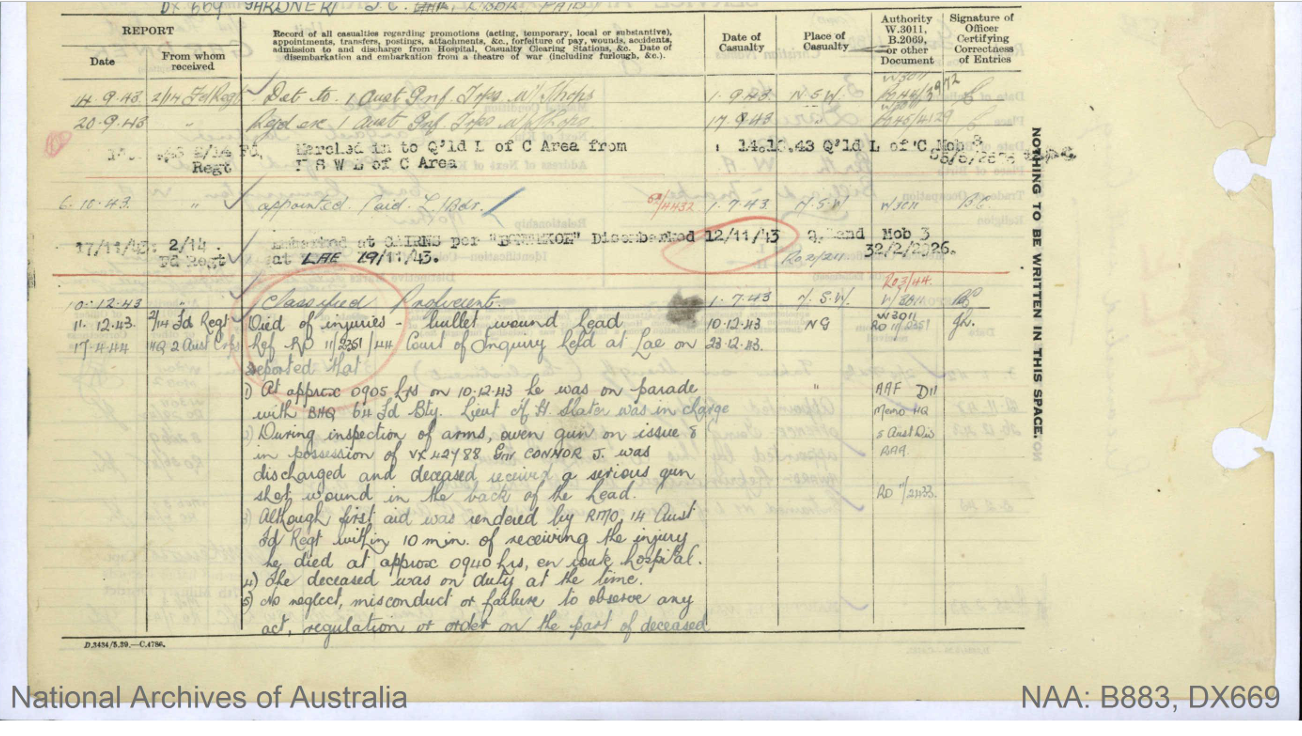 DX 669 GARDNER J.C.
REPORT
Date
From whom received
Record of all casualties regarding promotions (acting, temporary, local or substantive), appointments, transfers, postings, attachments, &c., forfeiture of pay, wounds, accidents, admission to and discharge from Hospital, Casualty Clearing Stations, &c. Date of disembarkation and embarkation from a theatre of war (including furlough, &c.).
Date of Casualty
Place of Casualty
Authority W.3011, B.2069, or other Document
Signature of Officer Certifying Correctness of Entries
14.9.43 2/14 Fd Regt Det to 1 Aust Inf Tps W/Shops 1.9.43 N S W W3011
20.9.43 " Rejd ex 1 Aust Inf Tps W/Shops 17.9.43
2/14 Fd. Regt Marched in to Q'ld L of C Area from N S W L of C Area 43 Q'ld L of C Mob 8
6.10.43 " appointed Paid L/Bdr. 1.7.43 N.S.W W3011
17/11/43 2/14 Fd Regt Embarked at CAIRNS per Disembarked at LAE 19/11/43. 12/11/43 Mob 3 32/2/2026.
Ro 2/211
Ro 2/44.
10.12.43 " Classified Proficient. 1.7.43 N.S.W.
11.12.43 2/14 Fd Regt Died of injuries - bullet wound head 10.12.43 NG W3011 RO 11/2351
17.4.44 HQ 2 Aust Corps Ref RO 11/2351/44 Court of Inquiry held at Lae on 23.12.43.
reported that
1) At approx 0905 hrs on 10.12.43 he was on parade " AAF D11
with BHQ 64 Fd Bty. Lieut Slater was in charge Memo HQ
2) During inspection of arms, owen gun on issue & 5 Aust Div
in possession of VX42488 Gnr CONNOR J. was RAA.
discharged and deceased received a serious gun
shot wound in the back of the head. RO 11/2433.
3) Although first aid was rendered by RMO, 14 Aust
Fd Regt within 10 min. of receiving the injury
he died at approx 0940 hrs, en route hospital.
4) The deceased was on duty at the time.
5) No neglect, misconduct or failure to observe any
act, regulation or order on the part of deceased
NOTHING TO BE WRITTEN IN THIS SPACE.
D.3434/5.39.—C.4786.
National Archives of Australia
NAA: B883, DX669